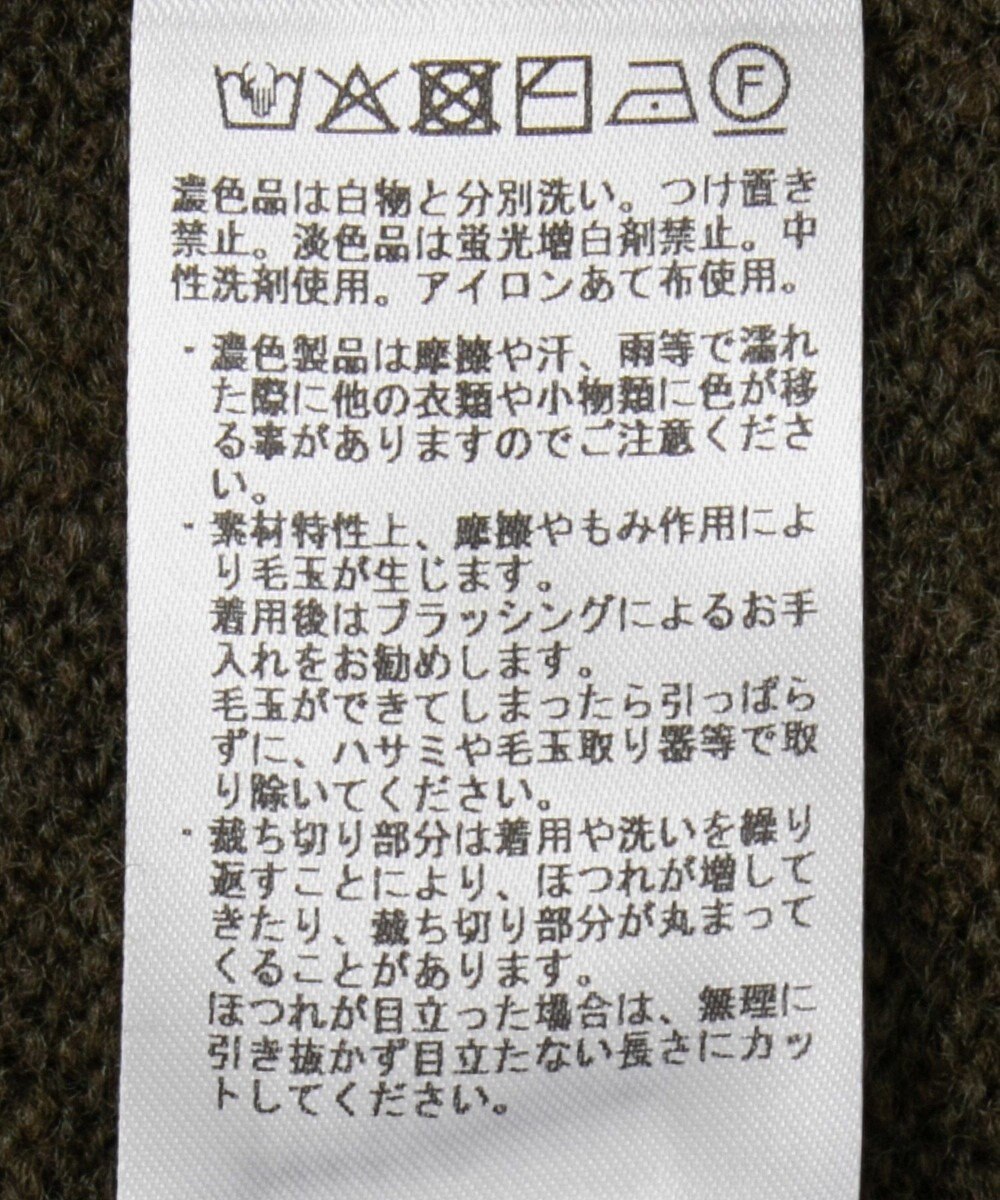 F
濃色品は白物と分別洗い。つけ置き
禁止。淡色品は蛍光増白剤禁止。中
性洗剤使用。アイロンあて布使用。
・濃色製品は摩擦や汗、雨等で濡れ
た際に他の衣類や小物類に色が移
る事がありますのでご注意くださ
い。
・素材特性上、摩擦やもみ作用によ
り毛玉が生じます。
着用後はブラッシングによるお手
入れをお勧めします。
毛玉ができてしまったら引っぱら
ずに、ハサミや毛玉取り器等で取
り除いてください。
・裁ち切り部分は着用や洗いを繰り
返すことにより、ほつれが増して
きたり、裁ち切り部分が丸まって
くることがあります。
ほつれが目立った場合は、無理に
引き抜かず目立たない長さにカッ
トしてください。